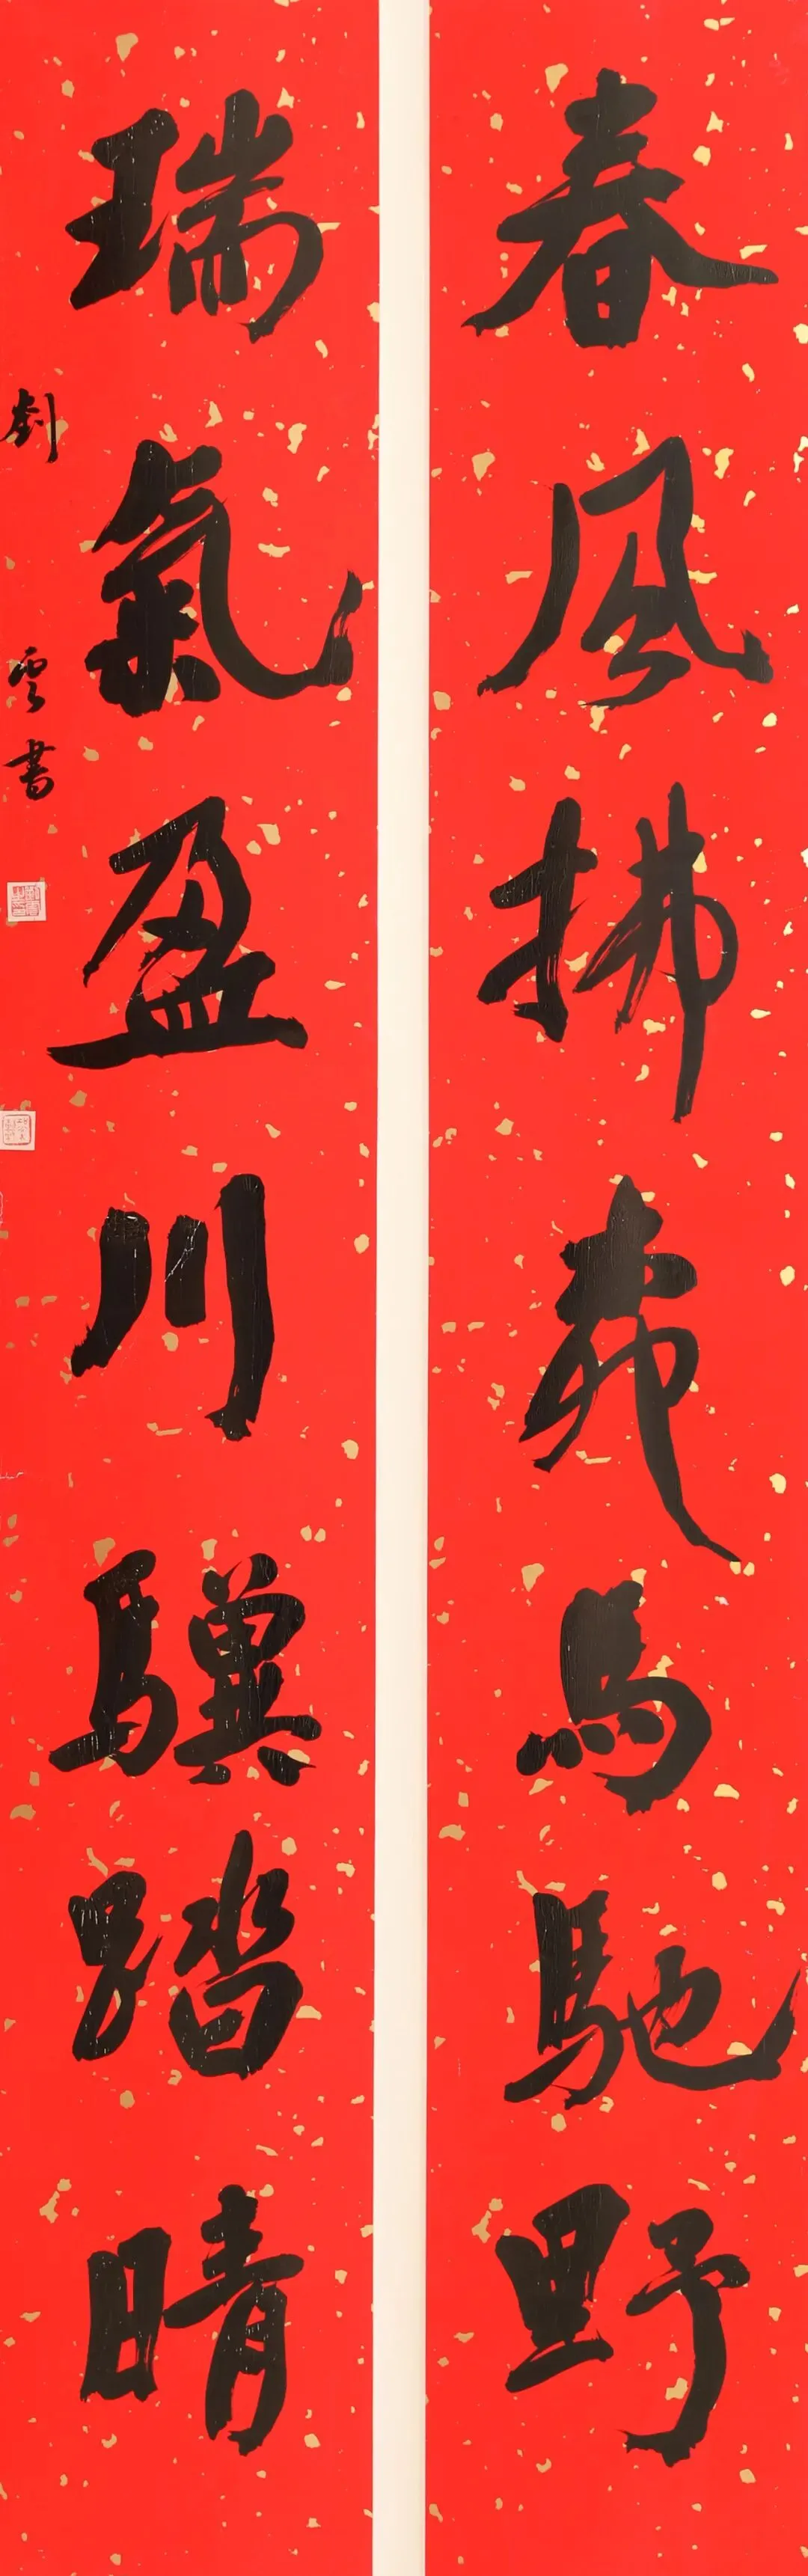 春風拂彝馬馳野
瑞氣盈川驥踏晴
劉雲書